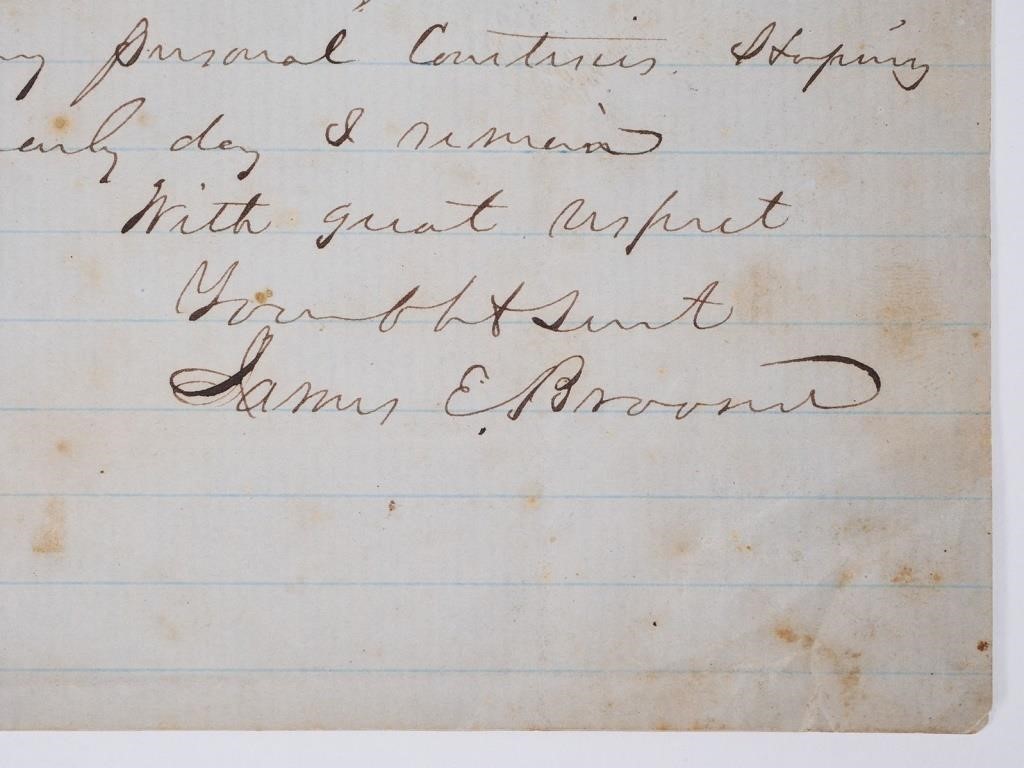 personal Courtisies. Hoping
early day I remain
With great respect
Your obt Servt
James E. Broome